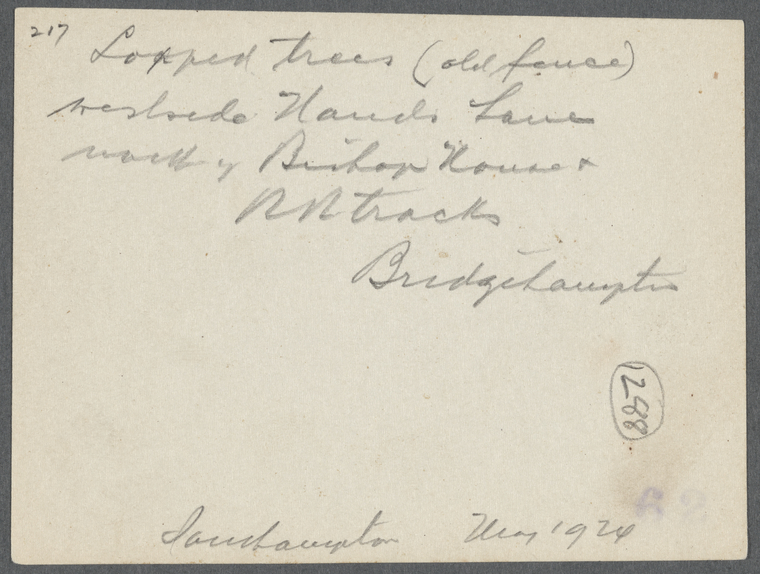 217
Lopped trees (old fence)
westside Hands Lane
north of Bishop House &
RR tracks
Bridgehampton
1288
62
Southampton May 1924